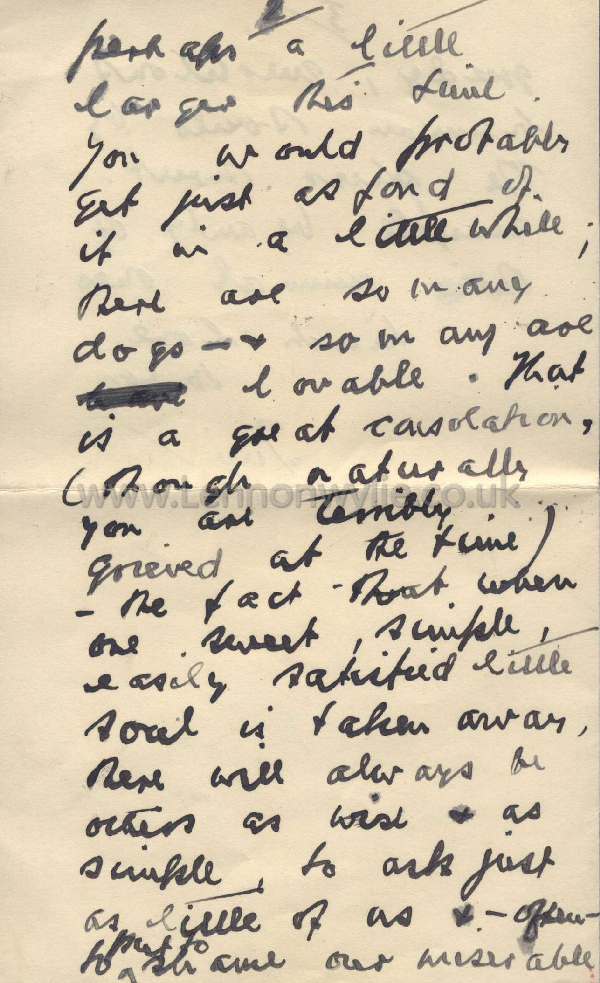 2
perhaps a little
larger this time.
You would probably
get just as fond of
it in a little while;
there are so many
dogs – & so many are
lovable. That
is a great consolation,
(though naturally
www.Lennonwylie.co.uk
you are terribly
grieved at the time)
– the fact that when
one sweet, simple,
easily satisfied little
soul is taken away,
there will always be
others as wise & as
simple, to ask just
as little of us & – often –
to put to shame our miserable